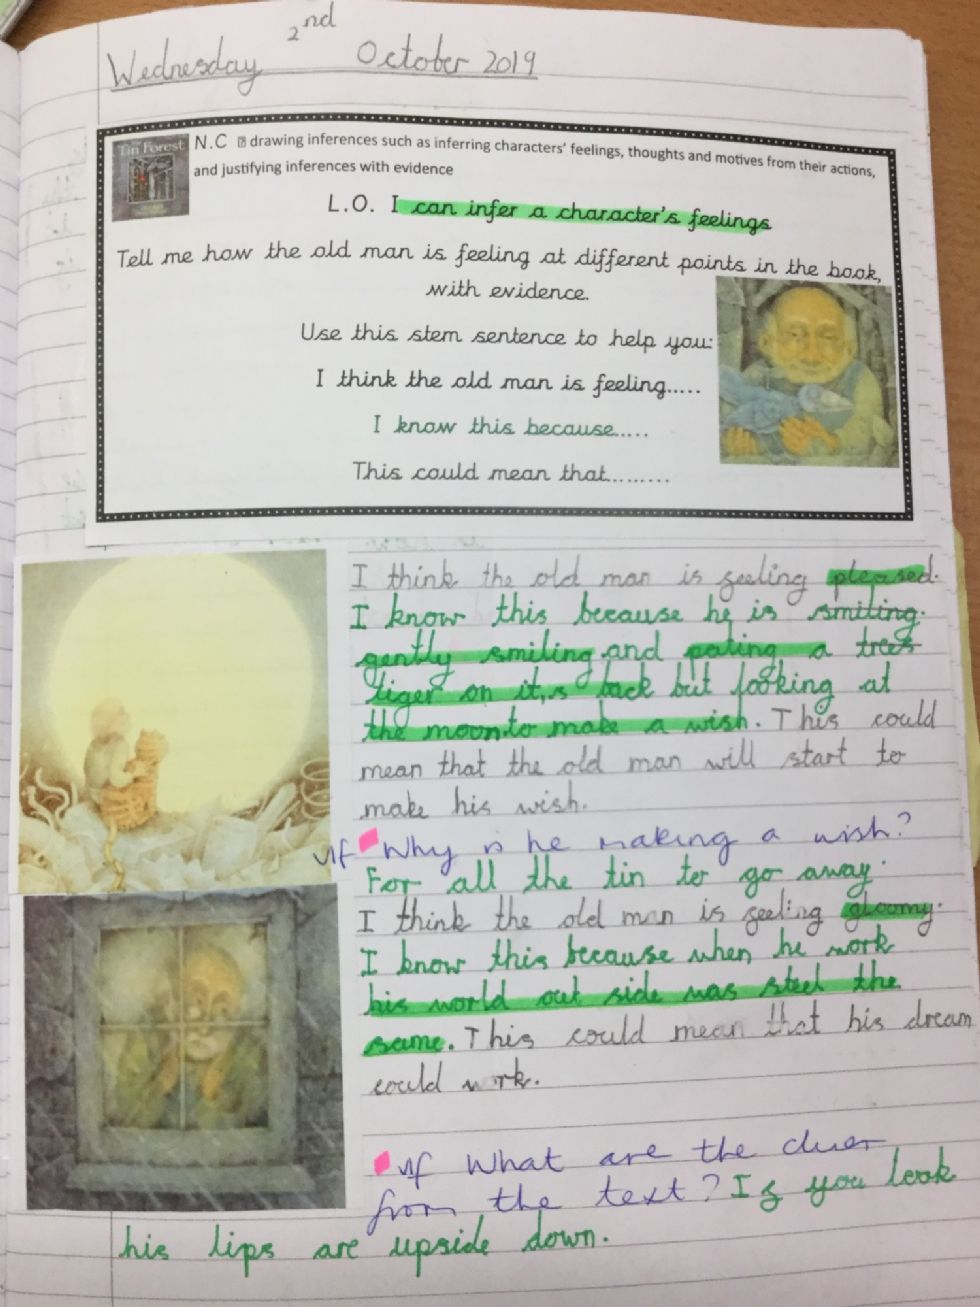 Wednesday 2nd October 2019
Tin Forest
N.C drawing inferences such as inferring characters' feelings, thoughts and motives from their actions,
and justifying inferences with evidence
L.O. I can infer a character's feelings
Tell me how the old man is feeling at different points in the book,
with evidence.
Use this stem sentence to help you:
I think the old man is feeling.....
I know this because.....
This could mean that.........
I think the old man is feeling pleased.
I know this because he is smiling.
gently smiling and pating a trees
tiger on it,s back but looking at
the moon.to make a wish. This could
mean that the old man will start to
make his wish.
vf Why is he making a wish?
For all the tin to go away.
I think the old man is feeling gloomy.
I know this because when he work
his world out side was steel the
same. This could mean that his dream
could work.
vf What are the clues
from the text? If you look
his lips are upside down.